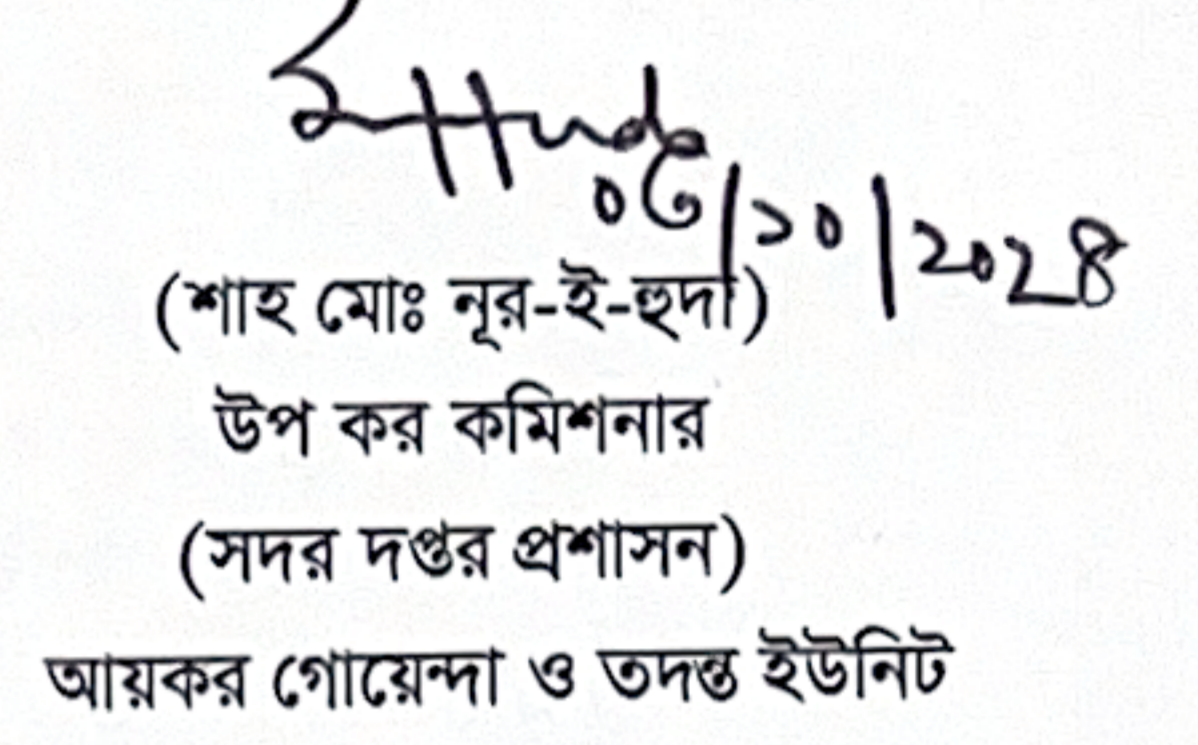 ০৬/১০/২০২৪
(শাহ মোঃ নূর-ই-হুদা)
উপ কর কমিশনার
(সদর দপ্তর প্রশাসন)
আয়কর গোয়েন্দা ও তদন্ত ইউনিট